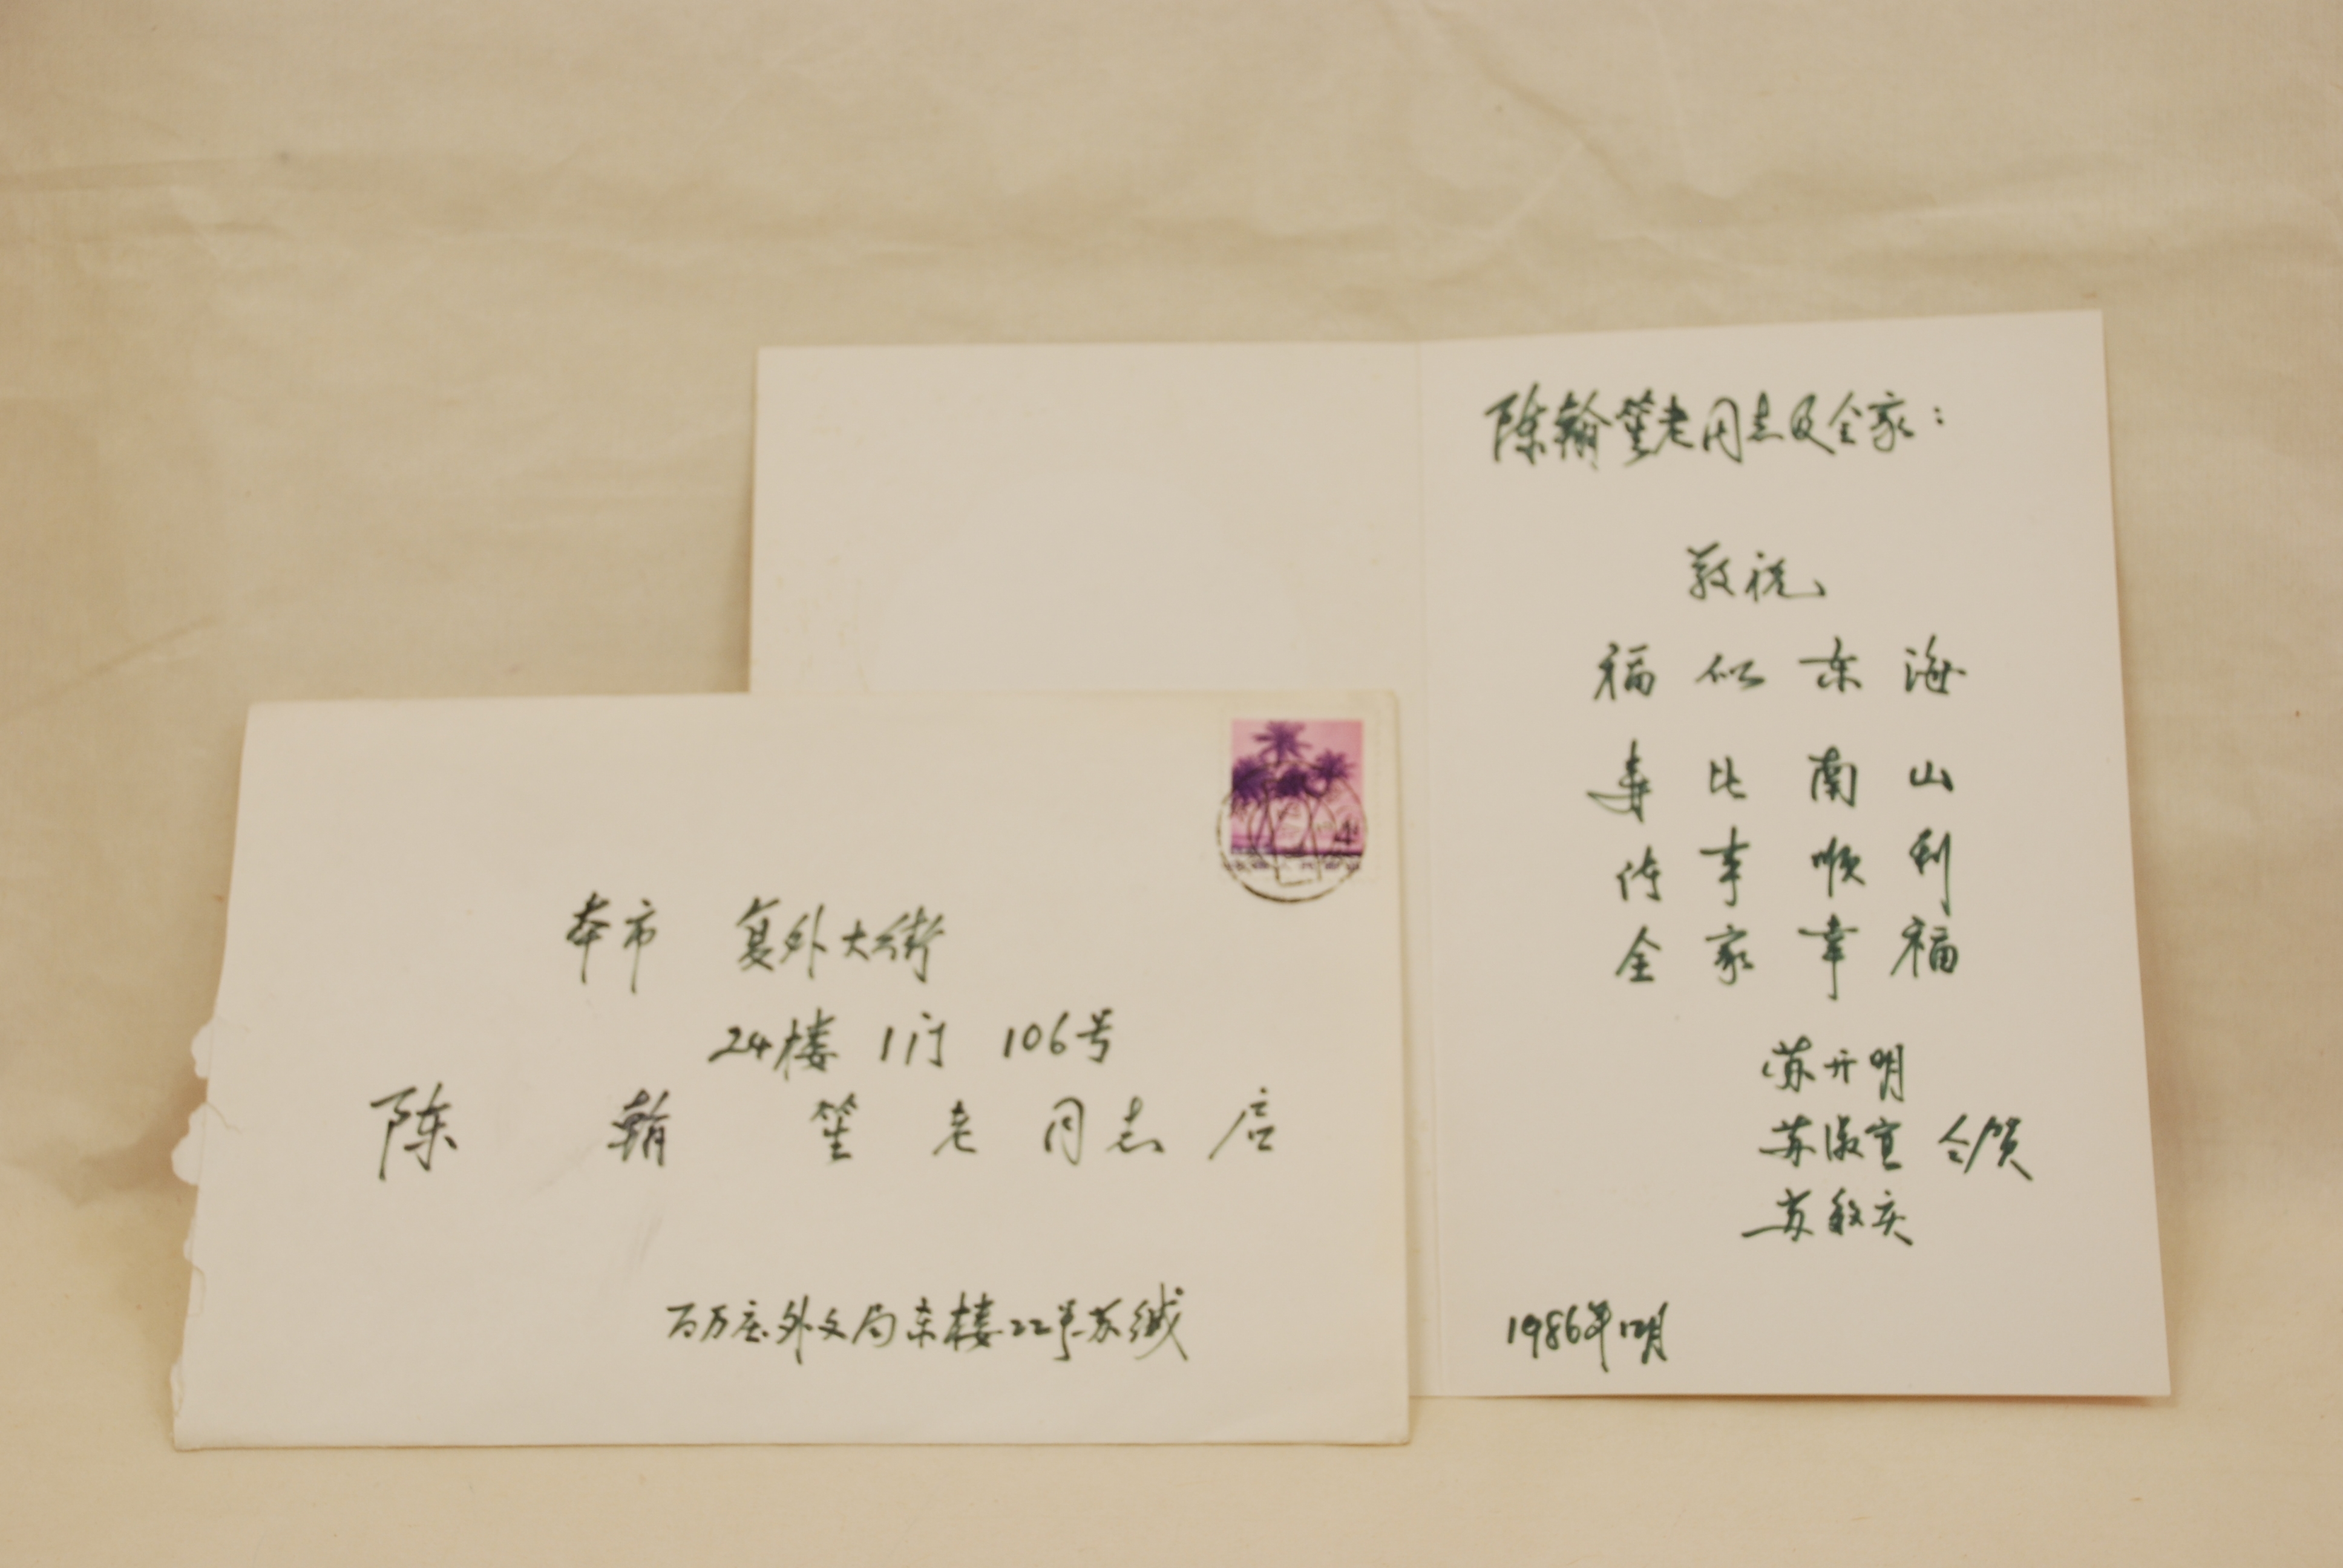 本市 复外大街
24楼 1门 106号
陈翰笙老同志 启
百万庄外文局东楼22号苏缄
陈翰笙老同志及全家：
敬祝
福似东海
寿比南山
诸事顺利
全家幸福
苏开明
苏淑宣 仝贺
苏毅庆
1986年12月
4